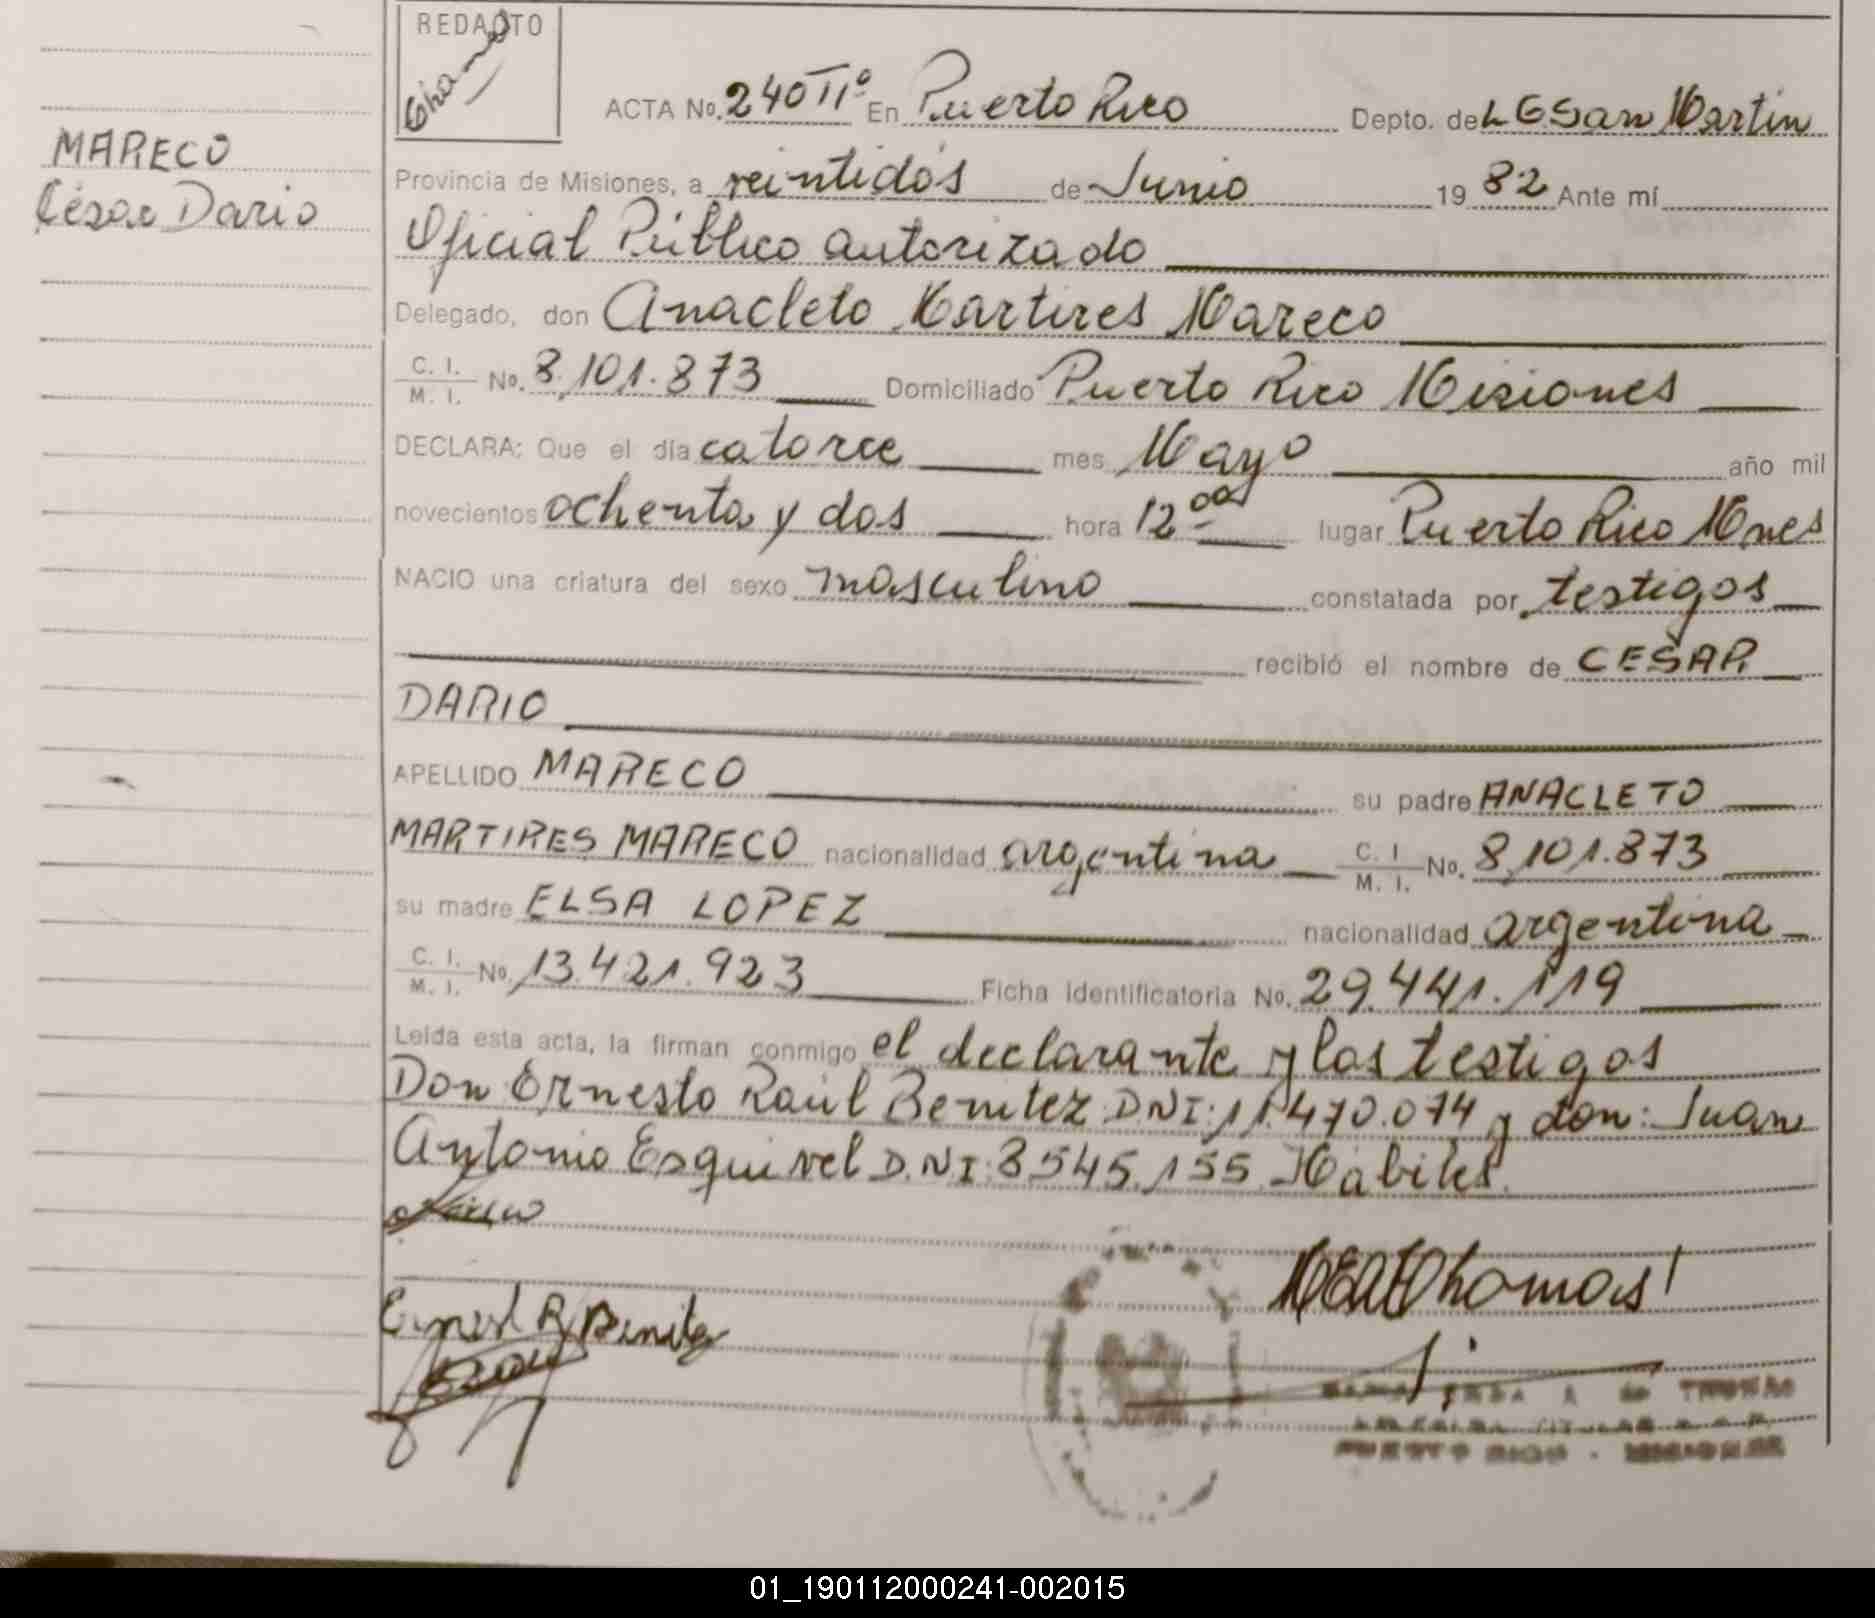 REDACTO
ACTA No. 240 IIº En Puerto Rico Depto. de L G San Martin
MARECO
Provincia de Misiones, a veintidós de Junio 19 82 Ante mí
César Dario
Oficial Público autorizado
Delegado, don Anacleto Martires Mareco
C. I. / M. I. No. 8.101.873 Domiciliado Puerto Rico Misiones
DECLARA: Que el día catorce mes Mayo año mil
novecientos ochenta y dos hora 12 lugar Puerto Rico Mnes
NACIO una criatura del sexo masculino constatada por testigos
recibió el nombre de CESAR
DARIO
APELLIDO MARECO su padre ANACLETO
MARTIRES MARECO nacionalidad argentina C. I / M. I. No. 8.101.873
su madre ELSA LOPEZ nacionalidad argentina
C. I. / M. I. No. 13.421.923 Ficha Identificatoria No. 29.441.119
Leída esta acta, la firman conmigo el declarante y los testigos
Don Ernesto Raúl Benitez D.N.I: 11.470.074 y don: Juan
Antonio Esquivel D.N.I: 8545.155 Hábiles.
PUERTO RICO - MISIONES
01_190112000241-002015